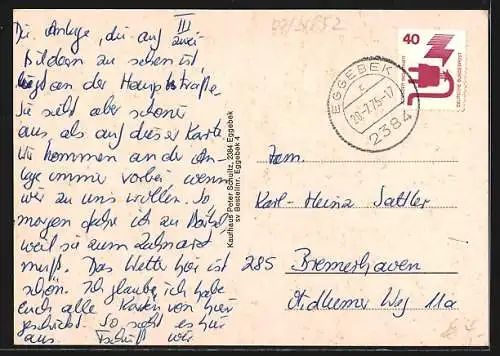 III
Die Anlage, die auf zwei
Bildern zu sehen ist,
liegt an der Hauptstraße.
Sie sieht aber schöner
aus als auf dieser Karte
Wir kommen an der An-
lage immer vorbei wenn
wir zu uns wollen. So
morgen fahre ich zu
weil sie zum Zahnarzt
muß. Das Wetter hier ist
schön. Ich glaube ich habe
euch alle Karten von hier
geschickt. So sieht es hier
aus. Tschüß
Kaufhaus Peter Schultz, 2384 Eggebek
sv Bestellnr. Eggebek 4
40
DEUTSCHE BUNDESPOST
EGGEBEK
20.-7.75-17
2384
Fam.
Karl-Heinz Sattler
285 Bremerhaven
Weg 11a